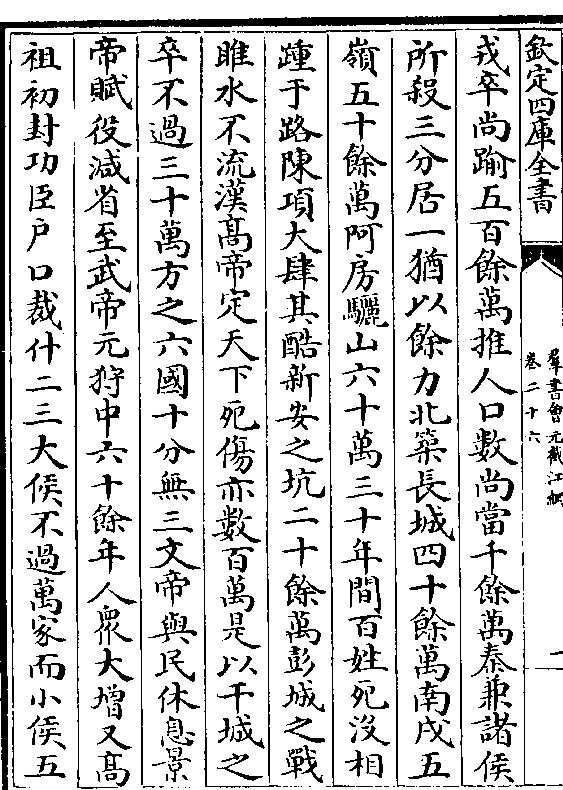 欽定四庫全書
羣書會元截江網
卷二十六
一
戎卒尚踰五百餘萬推人口數尚當千餘萬秦兼諸侯
所殺三分居一猶以餘力北築長城四十餘萬南戍五
嶺五十餘萬阿房驪山六十萬三十年間百姓死沒相
踵于路陳項大肆其酷新安之坑二十餘萬彭城之戰
睢水不流漢髙帝定天下死傷亦數百萬是以千城之
卒不過三十萬方之六國十分無三文帝與民休息景
帝賦役減省至武帝元狩中六十餘年人衆大增又髙
祖初封功臣户口裁什二三大侯不過萬家而小侯五